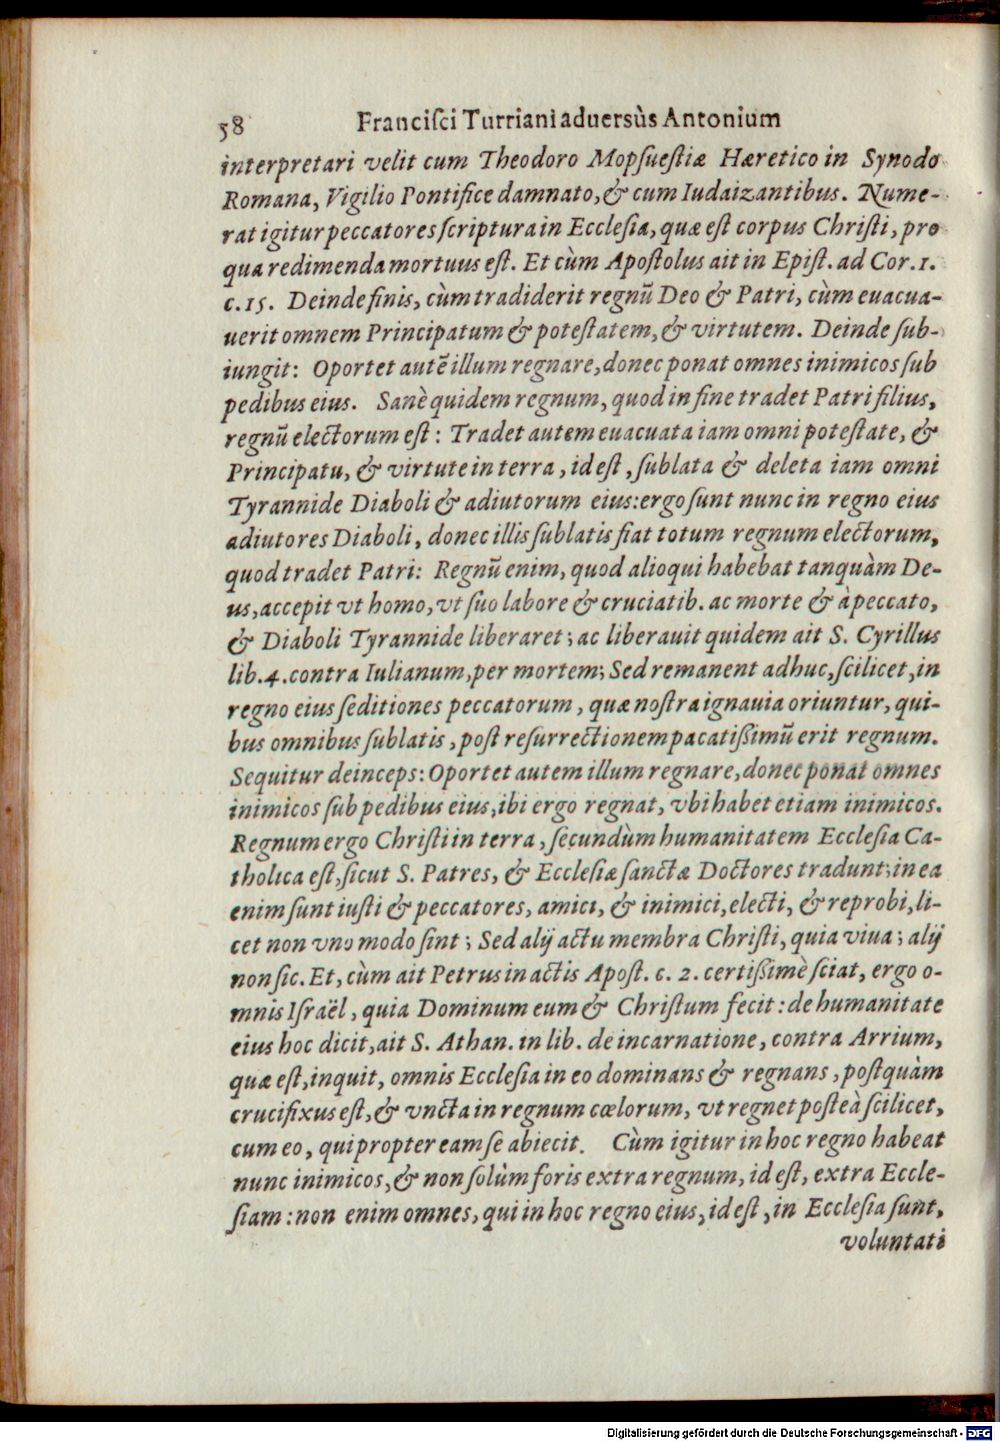 58 Franciſci Turriani aduersùs Antonium
interpretari velit cum Theodoro Mopſueſtiæ Hæretico in Synodo
Romana, Vigilio Pontifice damnato, & cum Iudaizantibus. Nume-
rat igitur peccatores ſcriptura in Eccleſia, quæ eſt corpus Chriſti, pro
qua redimenda mortuus eſt. Et cùm Apoſtolus ait in Epiſt. ad Cor. 1.
c. 15. Deinde finis, cùm tradiderit regnũ Deo & Patri, cùm euacua-
uerit omnem Principatum & poteſtatem, & virtutem. Deinde ſub-
iungit: Oportet autẽ illum regnare, donec ponat omnes inimicos ſub
pedibus eius. Sanè quidem regnum, quod in fine tradet Patri filius,
regnũ electorum eſt: Tradet autem euacuata iam omni poteſtate, &
Principatu, & virtute in terra, id eſt, ſublata & deleta iam omni
Tyrannide Diaboli & adiutorum eius: ergo ſunt nunc in regno eius
adiutores Diaboli, donec illis ſublatis fiat totum regnum electorum,
quod tradet Patri: Regnũ enim, quod alioqui habebat tanquàm De-
us, accepit vt homo, vt ſuo labore & cruciatib. ac morte & à peccato,
& Diaboli Tyrannide liberaret; ac liberauit quidem ait S. Cyrillus
lib. 4. contra Iulianum, per mortem; Sed remanent adhuc, ſcilicet, in
regno eius ſeditiones peccatorum, quæ noſtra ignauia oriuntur, qui-
bus omnibus ſublatis, poſt reſurrectionem pacatiſſimũ erit regnum.
Sequitur deinceps: Oportet autem illum regnare, donec ponat omnes
inimicos ſub pedibus eius, ibi ergo regnat, vbi habet etiam inimicos.
Regnum ergo Chriſti in terra, ſecundùm humanitatem Eccleſia Ca-
tholica eſt, ſicut S. Patres, & Eccleſiæ ſanctæ Doctores tradunt; in ea
enim ſunt iuſti & peccatores, amici, & inimici, electi, & reprobi, li-
cet non vno modo ſint; Sed alij actu membra Chriſti, quia viua; alij
non ſic. Et, cùm ait Petrus in actis Apoſt. c. 2. certiſſimè ſciat, ergo o-
mnis Iſraël, quia Dominum eum & Chriſtum fecit: de humanitate
eius hoc dicit, ait S. Athan. in lib. de incarnatione, contra Arrium,
quæ eſt, inquit, omnis Eccleſia in eo dominans & regnans, poſtquàm
crucifixus eſt, & vncta in regnum cœlorum, vt regnet poſteà ſcilicet,
cum eo, qui propter eam ſe abiecit. Cùm igitur in hoc regno habeat
nunc inimicos, & non ſolùm foris extra regnum, id eſt, extra Eccle-
ſiam: non enim omnes, qui in hoc regno eius, id eſt, in Eccleſia ſunt,
voluntati
Digitalisierung gefördert durch die Deutsche Forschungsgemeinschaft - DFG